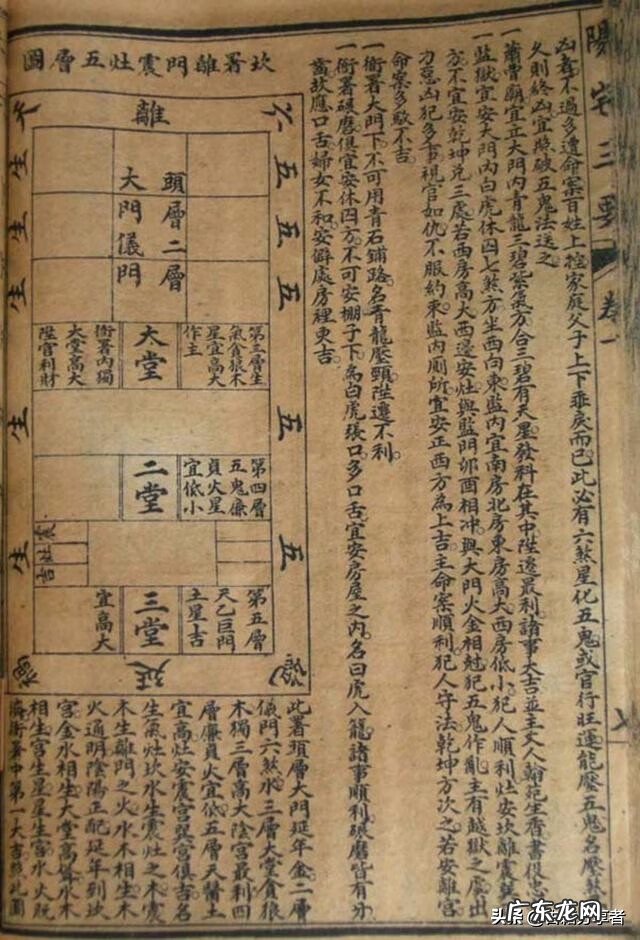 陽宅三要 卷一
凶者不過多遭命案百姓上控家庭父子上下乖戾而已此必有六煞星化五鬼或官行旺運能壓五鬼名壓煞
久則終凶宜破五鬼法送之
一蕭曹廟宜立大門內青龍三碧紫氣方合三碧有天星發科在其中陞遷最利諸事大吉並主文人翰苑生香書役忠
一監獄宜安大門內白虎休囚七煞方坐西向東監內宜南房北房東房高大西房低小犯人順利灶安坎離震巽
方不宜安乾坤兌三處若西房高大西邊安灶與監門卯酉相冲與大門火金相尅犯五鬼作亂主有越獄之虞出
力惡凶犯多事視官如仇不服約束監內厠所宜安正西方為上吉主命案順利犯人守法乾坤方次之若安離宮
命案多駁不吉
一衙署大門下不可用青石鋪路名青龍壓頸陞遷不利
一衙署碾磨俱宜安休囚方不可安棚子下為白虎張口多口舌宜安房屋之內名曰虎入籠諸事順利碾磨皆有牙
齒故應口舌婦女不和安僻處房裡更吉
坎署離門震灶五層圖
六
離
天
五
五
五
五
五
生
生
生
生
生
頭層二層
大門儀門
第三層生
氣貪狼木
星宜高大
作主
大堂
衙署內獨
大堂高大
陞官利財
第四層
五鬼廉
貞火星
宜低小
二堂
震
灶
吉
第五層
天乙巨門
土星吉
三堂
宜高大
絕
延
禍
此署頭層大門延年金二層
儀門六煞水三層大堂貪狼
木獨三層高大陰宮最利四
層廉貞火宜低五層天醫土
宜高灶安震宮巽宮俱吉名
生氣灶坎水生震灶之木震
木生離門之火水木相生木
火通明陰陽正配延年到坎
宮金水相生大堂高聳水木
相生宮生星星生宮水火既
濟衙署中第一大吉照此圖
头条@
广东龙网
分享者